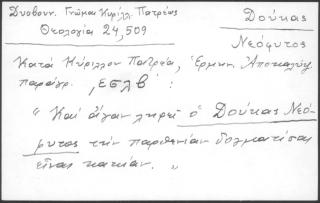 Δυοβουν. Γνῶμαι Κυρίλλ. Πατρέως
Θεολογία 24, 509
Δούκας
Νεόφυτος
Κατὰ Κύριλλον Πατρέα, Ἑρμην. Ἀποκαλύψ.
παράγρ. ͵ΕΣΛΒ´ :
"Καὶ λίαν ληρεῖ ὁ Δούκας Νεό-
φυτος τὴν παρθενίαν δογματίσας
εἶναι κακίαν."